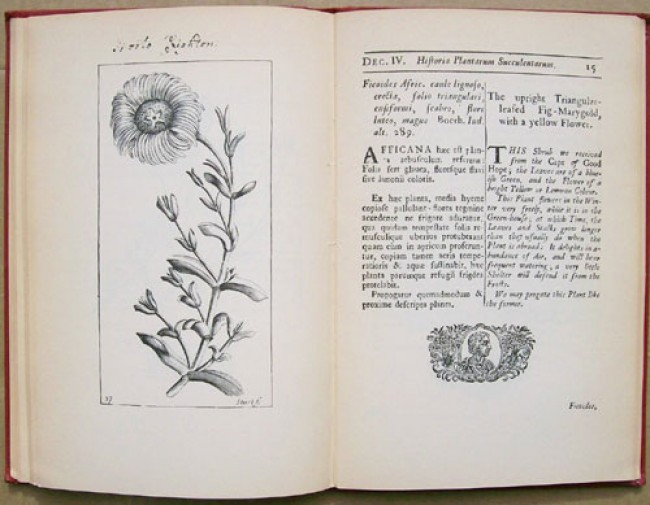 DEC. IV. Historia Plantarum Succulentarum. 15
Ficoides Afric. caule lignoso,
erecto, folio triangulari
ensiformi, scabro, flore
luteo, magno Boerh. Ind.
alt. 289.
AFFICANA hæc est plan-
ta arbuscu­lam
Folio fert glauca, floresque flavi
sive limonii coloris.
Ex hac planta, media hyeme
copiose pullulat flores tegmine
accedente ne frigore aduratur,
qua quidem tempestate folia
musculique uberius protuberant
quam cum in apricum proferun-
tur, copiam tamen aeris tempe-
ratioris & aquæ hæc
planta parvoque refugii frigora
Propagatur quemadmodum &
proxime descripta planta.
The upright Triangular-
leafed Fig-Marygold,
with a yellow Flower.
THIS Shrub we received
from the Cape of Good
Hope; the Leaves are of a blue-
ish Green, and the Flower of a
bright Yellow or Lemmon Colour.
This Plant flowers in the Win-
ter very freely, while it is in the
Green-house; at which Time, the
Leaves and Stalks grow longer
than they usually do when the
Plant is abroad: It delights in a-
bundance of Air, and will bear
frequent watering; a very little
Shelter will defend it from the
Frosts.
We may propagate this Plant like
the former.
Ficoides,